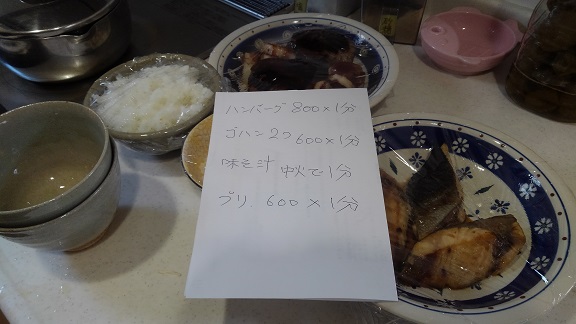 ハンバーグ 800×1分
ゴハン 2つ 600×1分
味そ汁 中火で1分
ブリ 600×1分